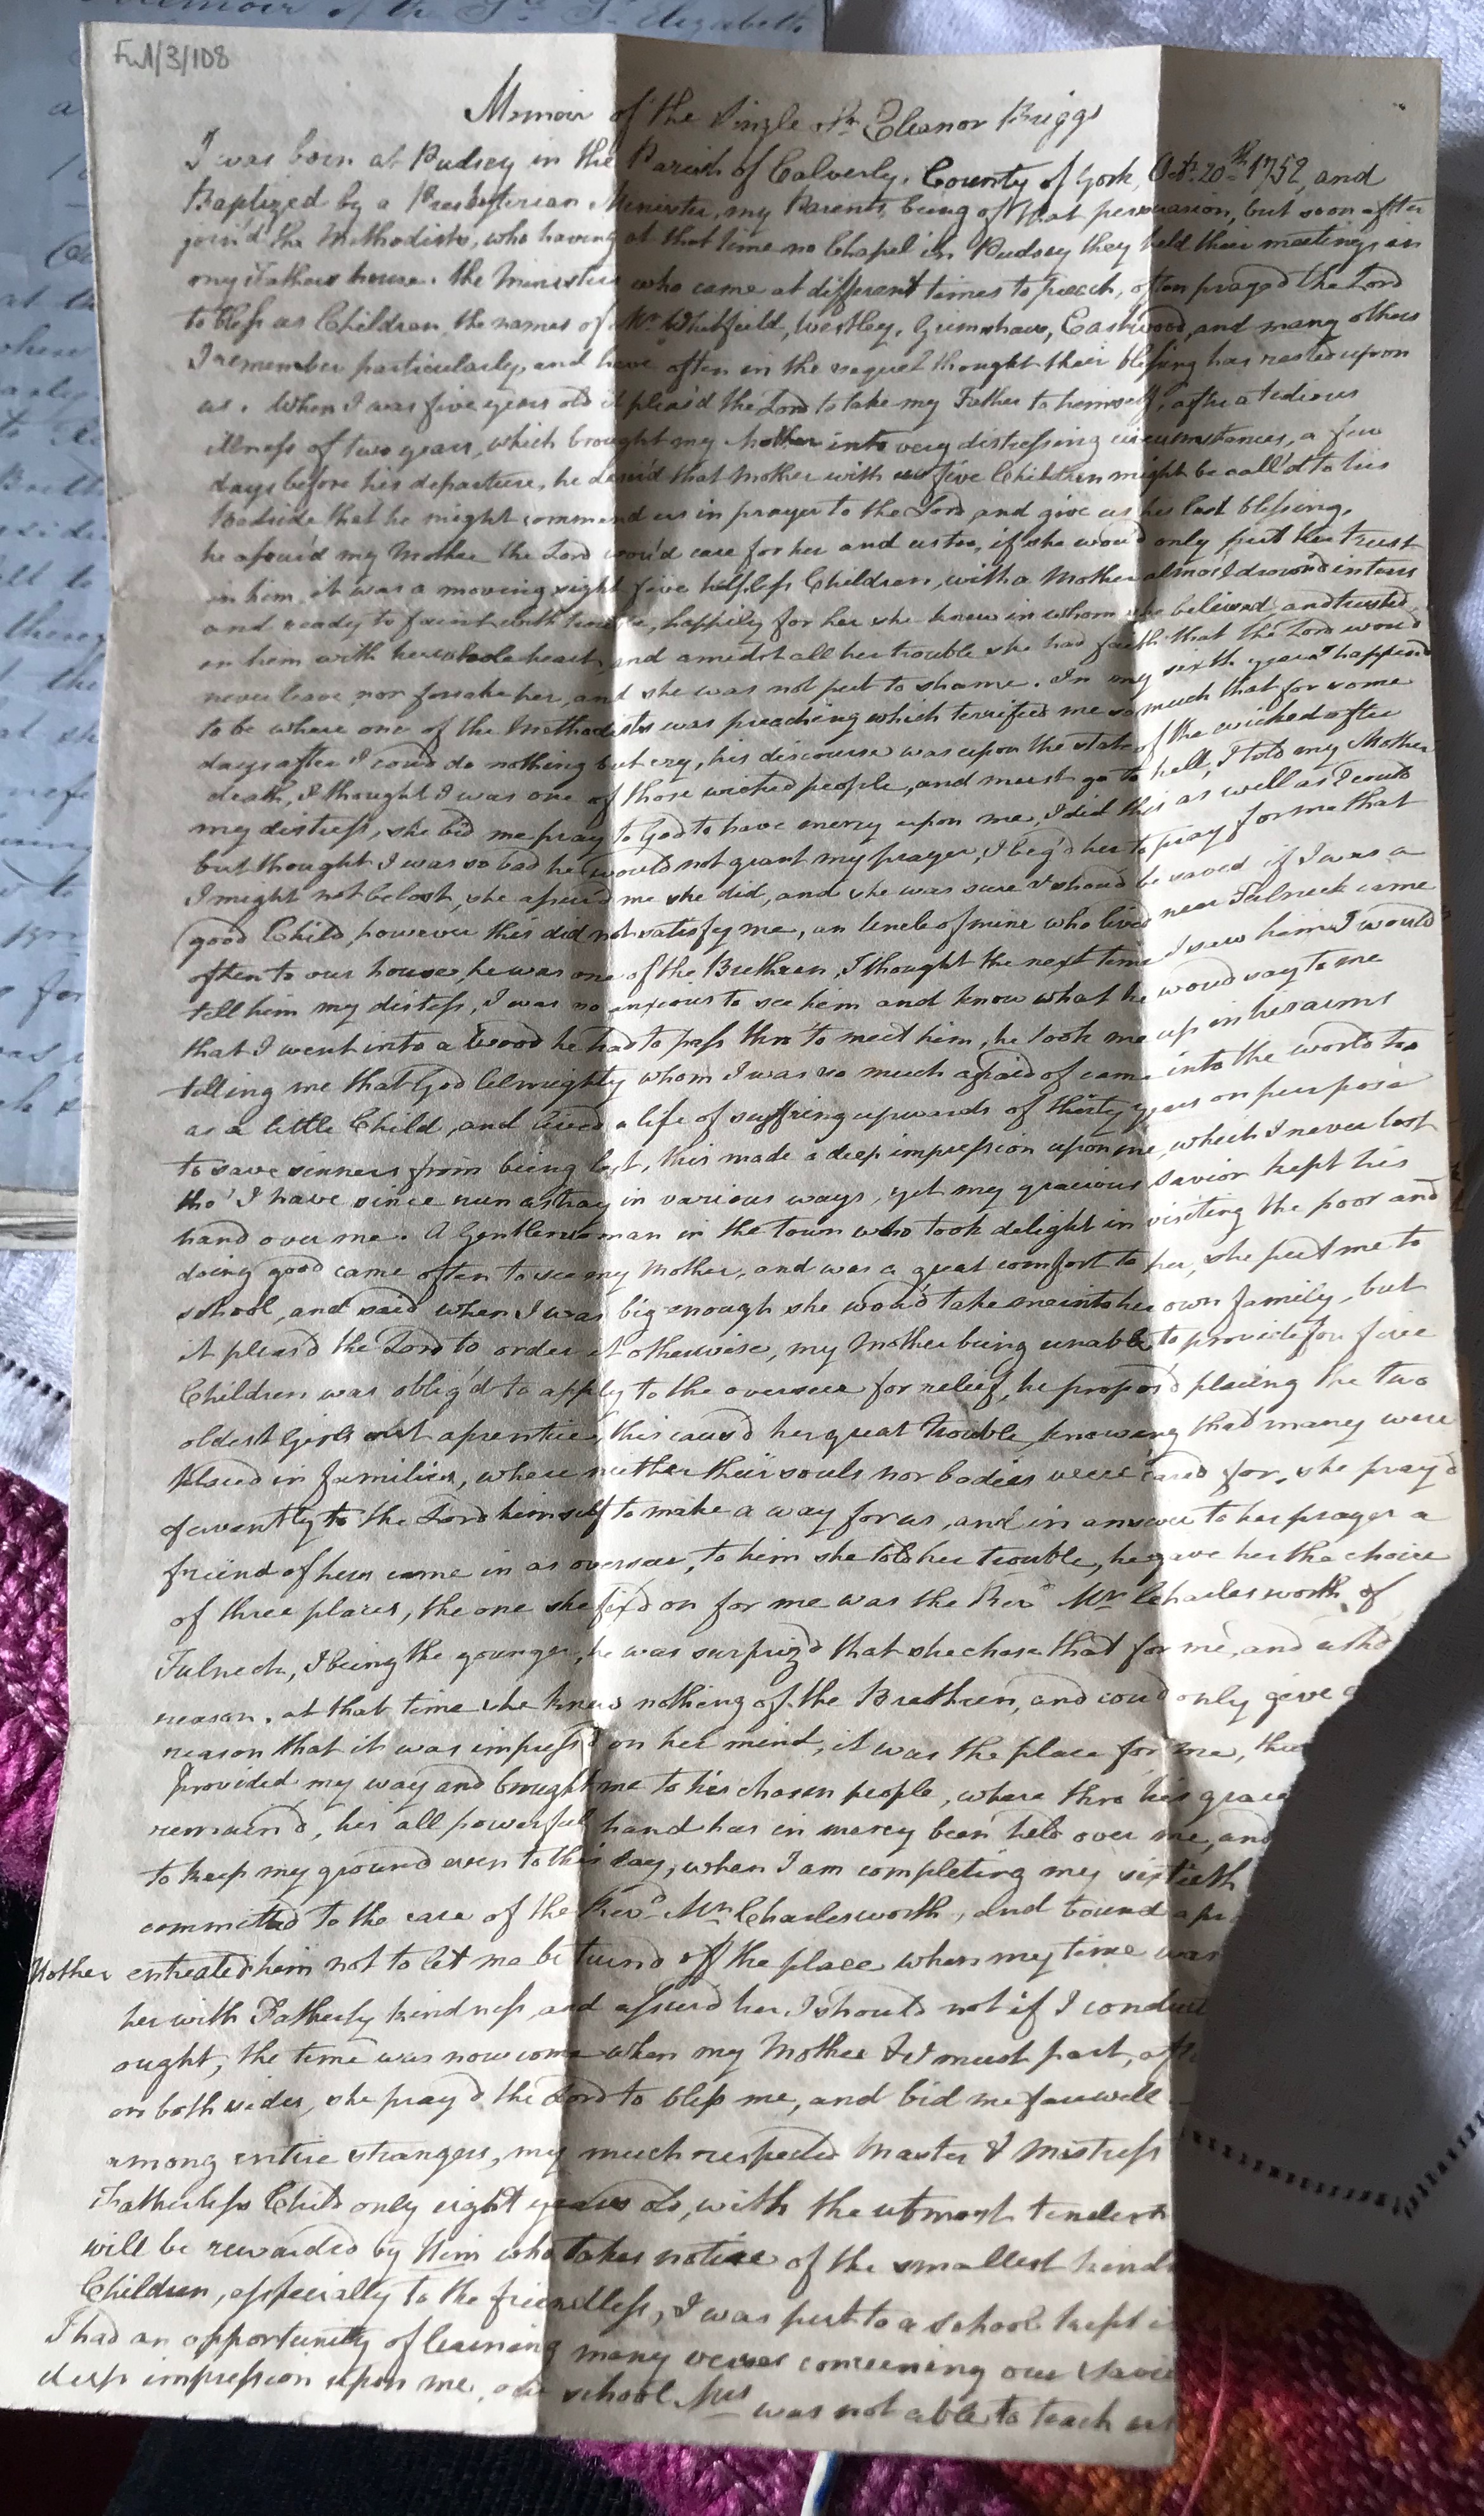 Ful/3/108
Memoir of the Single Sr Eleanor Briggs
I was born at Pudsey in the Parish of Calverly, County of York, Octr. 20th 1752, and
Baptized by a Presbyterian Minister, my Parents being of that persuasion, but soon after
join'd the Methodists, who having at that time no Chapel in Pudsey they held their meetings in
my Fathers house. the Ministers who came at different times to preach, often prayed the Lord
to bless us Children, the names of Mr. Whitfield, Westley, Grimshaw, Eastwood, and many others
I remember particularly, and have often in the sequel thought their blessing has rested upon
us. When I was five years old it pleas'd the Lord to take my Father to himself, after a tedious
illness of two years, which brought my Mother into very distressing circumstances, a few
days before his departure, he desir'd that Mother with us five Children might be call'd to his
Bedside that he might commend us in prayer to the Lord and give us his last blessing.
he assur'd my Mother the Lord wou'd care for her and us too, if she wou'd only put her trust
in him, it was a moving sight five helpless Children, with a Mother almost drown'd in tears
and ready to faint with trouble, happily for her she knew in whom she believed, and trusted
in him with her whole heart, and amidst all her trouble she had faith that the Lord wou'd
never leave nor forsake her, and she was not put to shame. In my sixth year I happen'd
to be where one of the Methodists was preaching which terrified me so much that for some
days after I cou'd do nothing but cry, his discourse was upon the state of the wicked after
death, I thought I was one of those wicked people, and must go to hell, I told my Mother
my distress, she bid me pray to God to have mercy upon me, I did this as well as I could
but thought I was so bad he would not grant my prayer, I beg'd her to pray for me that
I might not be lost, she assur'd me she did, and she was sure I shou'd be saved if I was a
good Child, however this did not satisfy me, an Uncle of mine who lived near Fulneck came
often to our house, he was one of the Brethren, I thought the next time I saw him I would
tell him my distess, I was so anxious to see him and know what he wou'd say to me
that I went into a Wood he had to pass thro' to meet him, he took me up in his arms
telling me that God Almighty whom I was so much afraid of came into the world too
as a little Child, and lived a life of suffring upwards of thirty years on purpose
to save sinners from being lost, this made a deep impression upon me, which I never lost
tho' I have since run astray in various ways, yet my gracious Savior kept his
hand over me. A Gentlewoman in the town who took delight in visiting the poor and
doing good came often to see my Mother, and was a great comfort to her, she put me to
school, and said when I was big enough she wou'd take me into her own family, but
it pleas'd the Lord to order it otherwise, my Mother being unable to provide for five
Children was oblig'd to apply to the overseer for relief, he propos'd placing the two
oldest Girls out aprentice, this caus'd her great trouble, knowing that many were
placed in families, where neither their souls nor bodies were cared for, she pray'd
fervently to the Lord himself to make a way for us, and in answer to her prayer a
friend of hers came in as overseer, to him she told her trouble, he gave her the choice
of three places, the one she fix'd on for me was the Revd Mr Charlesworth of
Fulneck, I being the younger, he was surpriz'd that she chose that for me, and ask'd
reason, at that time she knew nothing of the Brethren, and cou'd only give
reason that it was impress'd on her mind, it was the place for me,
provided my way and brought me to his chosen people, where thro his grace
remain'd, his all powerful hand has in mercy been held over me, and
to keep my ground even to this day, when I am completing my sixtieth
committed to the care of the Revd Mr Charlesworth, and bound
Mother entreated him not to let me be turn'd off the place when my time was
her with Fatherly kindness, and assur'd her I should not if I conduct
ought, the time was now come when my Mother & I must part,
on both sides, she pray'd the Lord to bless me, and bid me farewell
among entire strangers, my much respected Master & Mistress
Fatherless Child only eight years old, with the utmost
will be rewarded by Him who takes notice of the smallest
Children, especially to the friendless, I was put to a school kept
I had an opportunity of learning many verses concerning our
deep impression upon me, our school Mrs was not able to teach us